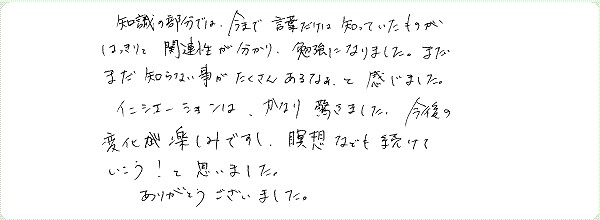 知識の部分では、今まで言葉だけは知っていたものが
はっきりと関連性が分かり、勉強になりました。まだ
まだ知らない事がたくさんあるなぁ、と感じました。
イニシエーションは、かなり驚きました。今後の
変化が楽しみですし、瞑想なども続けて
いこう!と思いました。
ありがとうございました。